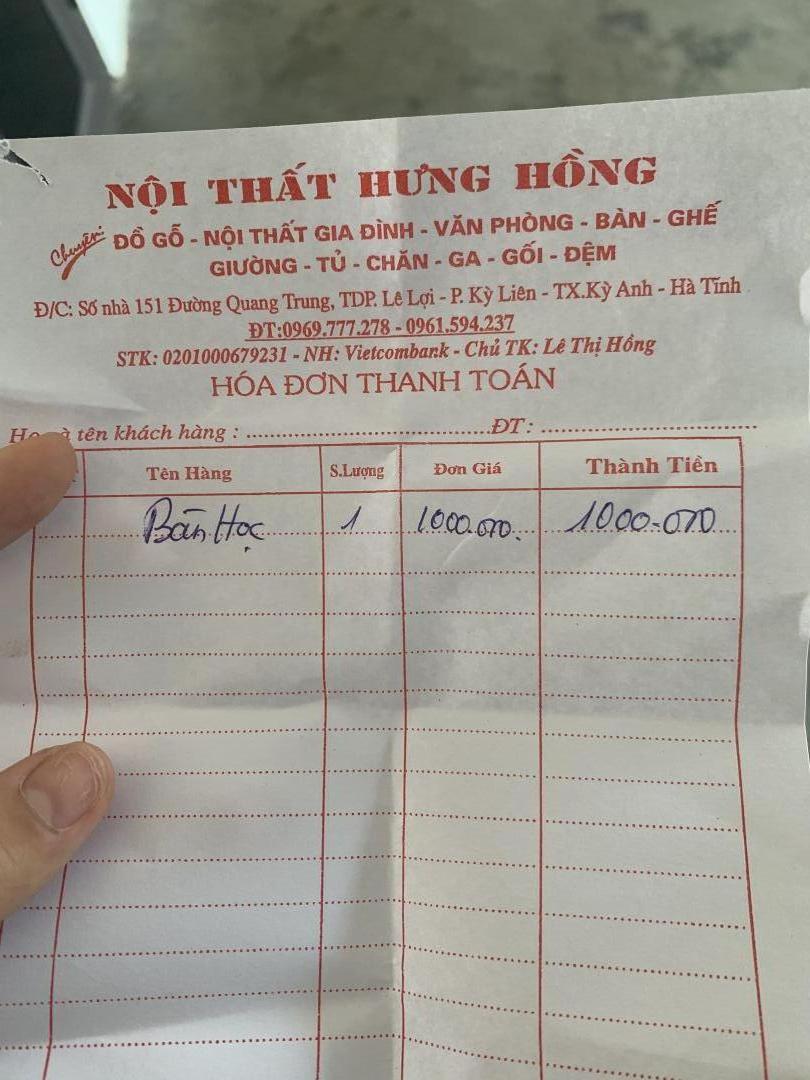 NỘI THẤT HƯNG HỒNG
Chuyên: ĐỒ GỖ - NỘI THẤT GIA ĐÌNH - VĂN PHÒNG - BÀN - GHẾ
GIƯỜNG - TỦ - CHĂN - GA - GỐI - ĐỆM
Đ/C: Số nhà 151 Đường Quang Trung, TDP. Lê Lợi - P. Kỳ Liên - TX.Kỳ Anh - Hà Tĩnh
ĐT:0969.777.278 - 0961.594.237
STK: 0201000679231 - NH: Vietcombank - Chủ TK: Lê Thị Hồng
HÓA ĐƠN THANH TOÁN
Họ và tên khách hàng : ĐT :
Tên Hàng S.Lượng Đơn Giá Thành Tiền
Bàn Học 1 1000.000. 1000.000